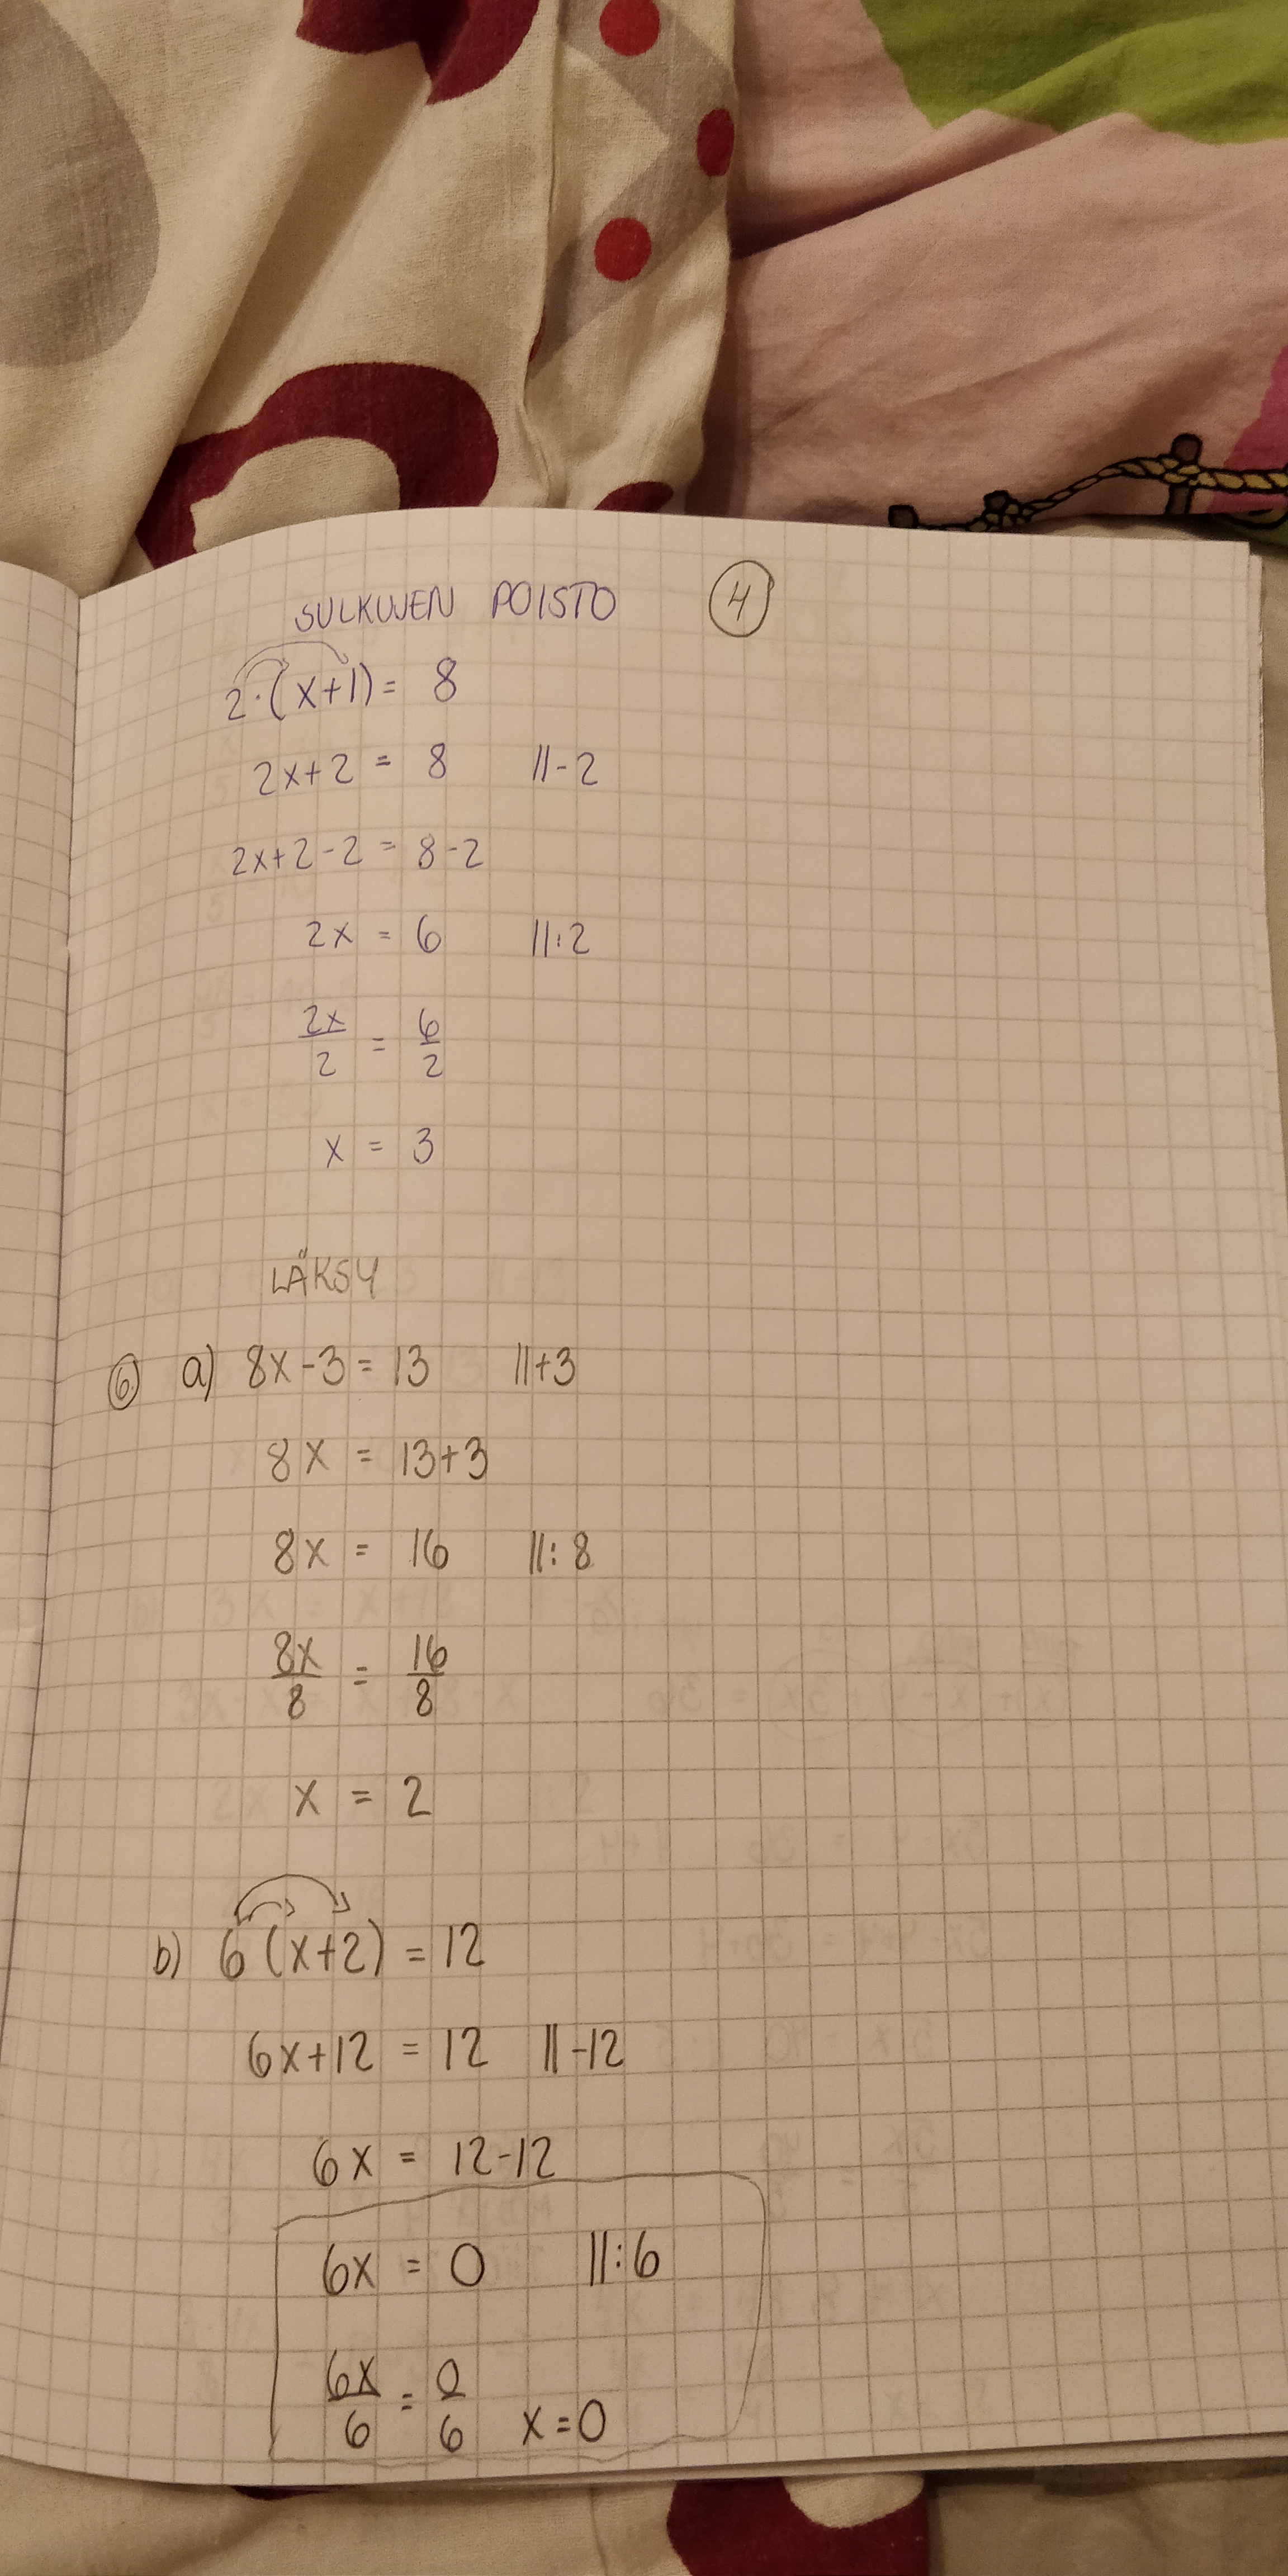 SULKUJEN POISTO 4
2·(x+1) = 8
2x+2 = 8 ||-2
2x+2-2 = 8-2
2x = 6 ||:2
2x/2 = 6/2
x = 3
LÄKSY
6 a) 8x-3 = 13 ||+3
8x = 13+3
8x = 16 ||:8
8x/8 = 16/8
x = 2
b) 6(x+2) = 12
6x+12 = 12 ||-12
6x = 12-12
6x = 0 ||:6
6x/6 = 0/6 x=0